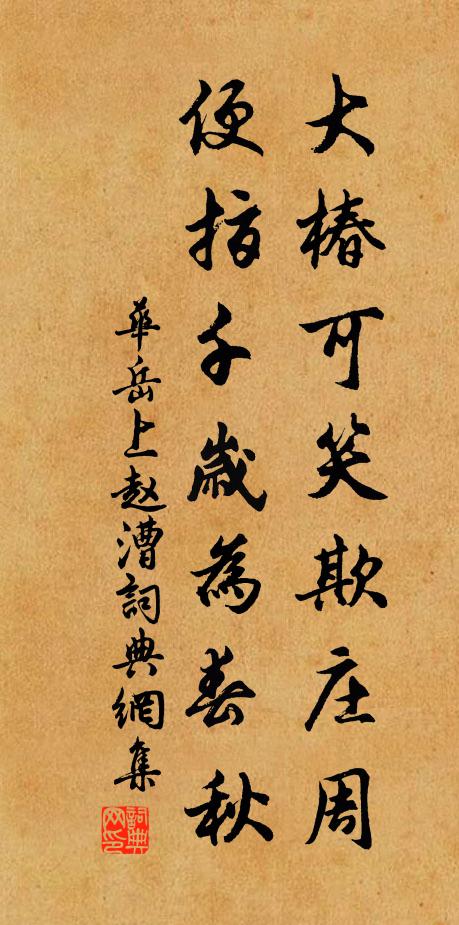 大椿可笑欺庄周
便指千歲為春秋
華岳上赵漕詞典網集
詞典网印